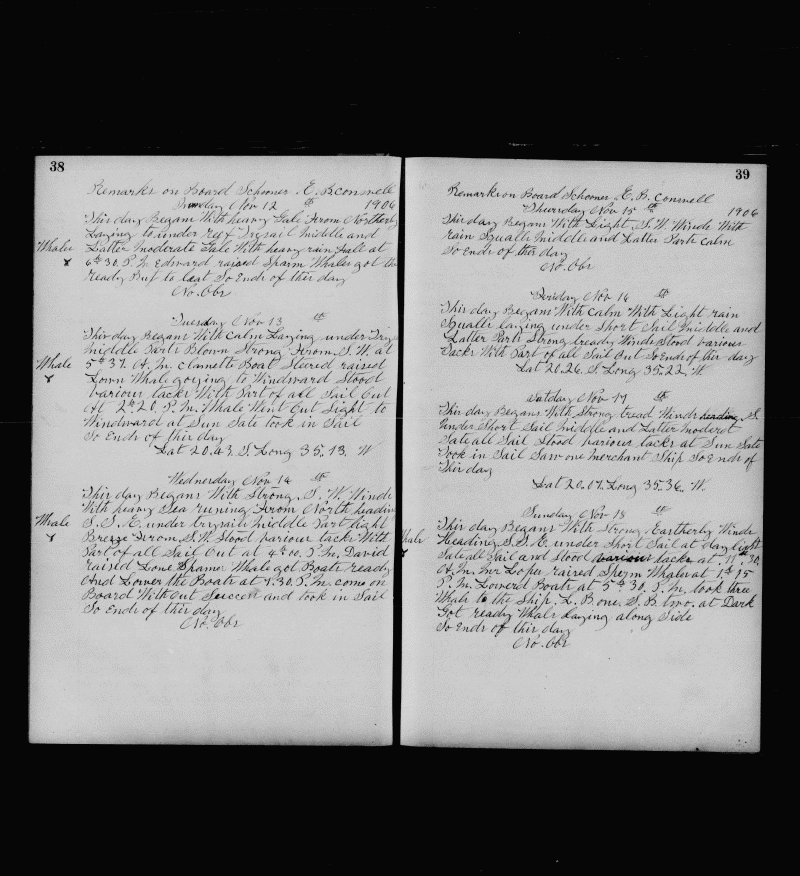 38
Remarks on Board Schooner E. B. Conwell
Nov 12th 1906
This day Begans With heavy Gale From Northerly
Laying to under reef Trysail middle and
Whale
Latter moderate Gale With heavy rain Fall at
6h 30. P. M. Edward raised Sparm Whales got the
ready But to last So Ends of this day
No. Obs
Tuesday Nov 13th
This day Begans With calm Laying under
middle Parts Blown Strong From S. W. at
Whale
5h 37. A. M. Boat Steered raised
Whale going to Windward Stood
various tacks With Part of all Sail Out
At 2h 20. P. M. Whale Went Out Sight to
Windward at Sun Sate took in Sail
So Ends of this day
Lat 20.43. S. Long 35.13. W
Wednesday Nov 14th
This day Begans With Strong, S. W. Winds
With heavy Sea runing From North heading
Whale
S. S. E. under trysail middle Part light
Breeze From S. W. Stood various tacks With
Part of all Sail Out at 4h 00. P. M. David
raised Lone Sparm Whale got Boats ready
And Lower the Boats at 4.30. P. M. come on
Board With Out Success and took in Sail
So Ends of this day
No. Obs
39
Remarks on Board Schooner E. B. Conwell
Thursday Nov 15th 1906
This day Begans With Light, S. W. Winds With
rain Squalls middle and Latter Parts calm
So Ends of this day
No Obs
Friday Nov 16th
This day Begans With calm With Light rain
Squalls laying under Short Sail middle and
Latter Parts Strong Winds Stood various
tacks With Part of all Sail Out So Ends of this day
Lat 20.26. S. Long 35.22. W
Satday Nov 17th
This day Begans With Strong Winds heading S.
under Short Sail middle and Latter moderat
Sate all Sail Stood various tacks at Sun Sate
Took in Sail Saw one merchant Ship So Ends of
This day
Lat 20.07. Long 35.36. W.
Sunday Nov 18th
This day Begans With Strong, Eartherly Winds
Whale
Heading S. S. E. under Short Sail at day light
Sate all Sail and Stood various tacks at 11h 30.
A. M. Mr Lopes raised Sperm Whales at 1h 15
P. M. Lowered Boats at 5h 30. P. M. took three
Whale to the Ship. L. B one, S. B. two. at Dark
Got ready Whale Laying along Side
So Ends of this day
No. Obs